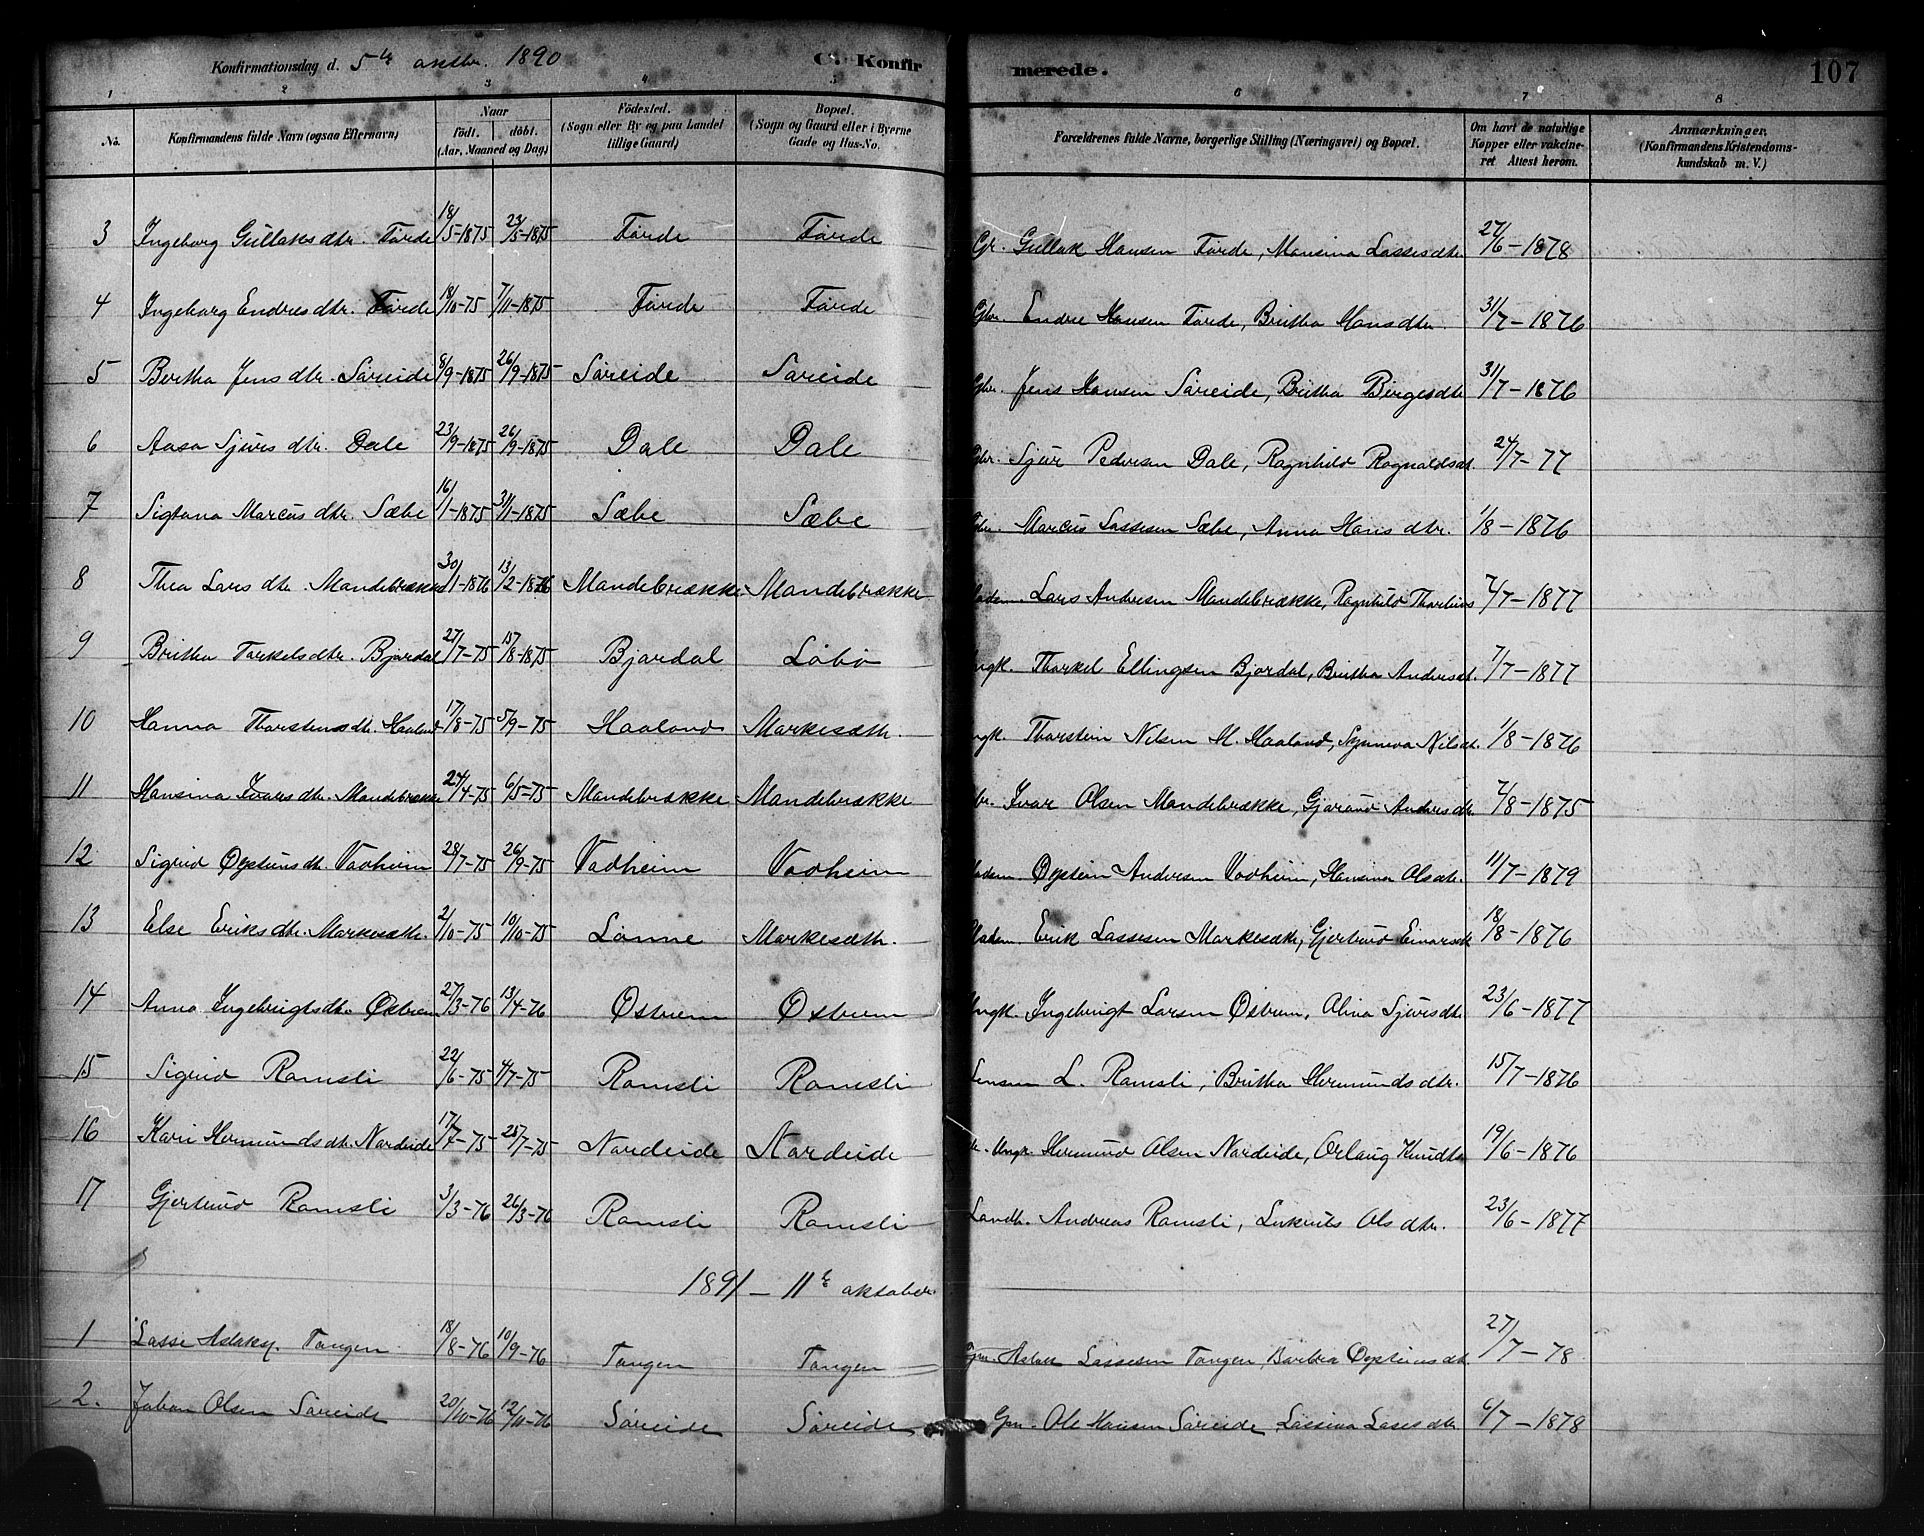 Konfirmationsdag d. 5te 1890 C. Konfirmerede. 107
1 2 3 4 5 6 7 8
No. Konfirmandens fulde Navn (ogsaa Efternavn) Naar födt. döbt. (Aar, Maaned og Dag) Födested. (Sogn eller By og paa Landet tillige Gaard) Bopæl. (Sogn og Gaard eller i Byerne Gade og Hus-No. Forældrenes fulde Navne, borgerlige Stilling (Næringsvei) og Bopæl. Om havt de naturlige Kopper eller vakcineret Attest herom. Anmærkninger. (Konfirmandens Kristendomskundskab m. V.)
3 Ingeborg Gullaksdtr. Förde 18/5-1875 23/5-1875 Förde Förde Gr. Gullak Hansen Förde, Mansina Lassesdtr. 27/6-1878
4 Ingeborg Endresdtr. Förde 18/10-75 7/11-1875 Förde Förde Gbr. Endre Hansen Förde, Britha Hansdtr. 31/7-1876
5 Bertha Jensdtr. Söreide 8/9-1875 26/9-1875 Söreide Söreide Gbr. Jens Hansen Söreide, Britha Börgesdtr 31/7-1876
6 Aasa Sjursdtr. Dale 23/9-1875 26/9-1875 Dale Dale Gbr. Sjur Pedersen Dale, Ragnhild Ragnaldsdt. 24/7-77
7 Sigtana Marcusdtr. Sæbe 16/1-1875 31/1-1875 Sæbe Sæbe Gbr. Marcus Lassesen Sæbe, Anna Hansdtr. 1/8-1876
8 Thea Larsdtr. Mandebrække 30/1-1876 13/2-1876 Mandebrække Mandebrække Lars Andersen Mandebrække, Ragnhild 7/7-1877
9 Britha Torkelsdtr. Bjordal 27/7-75 15/8-1875 Bjordal Löbö Thorkel Ellingsen Bjordal, Britha Andersdt. 7/7-1877
10 Hanna Thorstensdtr. Haaland 17/8-75 5/9-75 Haaland Markesæth. Thorstein Nilsen M. Haaland, Synneva Nilsdt. 1/8-1876
11 Hansina Ivarsdtr. Mandebrække 24/4-75 6/5-75 Mandebrække Mandebrække Ivar Olsen Mandebrække, Gjörund Andersdtr. 7/8-1875
12 Sigrid Öysteinsdtr. Vadheim 28/7-75 26/9-75 Vadheim Vadheim Öystein Andersen Vadheim, Hansina Olsdtr. 11/7-1879
13 Else Eriksdtr. Markesæth. 2/10-75 10/10-75 Lönne Markesæth. Erik Lassesen Markesæth, Gjertrud Einarsdt 18/8-1876
14 Anna Ingebrigtsdtr. Østrem 27/3-76 13/4-76 Østrem Østrem Ingebrigt Larsen Østrem, Olina Sjursdtr 23/6-1877
15 Sigrid Ramsli 22/6-75 4/7-75 Ramsli Ramsli L. Ramsli, Britha Hermundsdtr. 15/7-1876
16 Kari Hermundsdtr. Nordeide 17/7-75 25/7-75 Nordeide Nordeide Hermund Olsen Nordeide, Orlaug Knudtsd 19/6-1876
17 Gjertrud Ramsli 3/3-76 26/3-76 Ramsli Ramsli Landh. Andreas Ramsli, Olsdtr. 23/6-1877
1891 - 11te oktober
1 Lasse Aslaks. Tangen 18/8-76 10/9-76 Tangen Tangen Aslak Lassesen Tangen, Barbra Öysteinsdt. 27/7-78
2. Johan Olsen Söreide 20/10-76 12/11-76 Söreide Söreide Gm. Ole Hansen Söreide Lassina Lassesdtr 6/7-1878